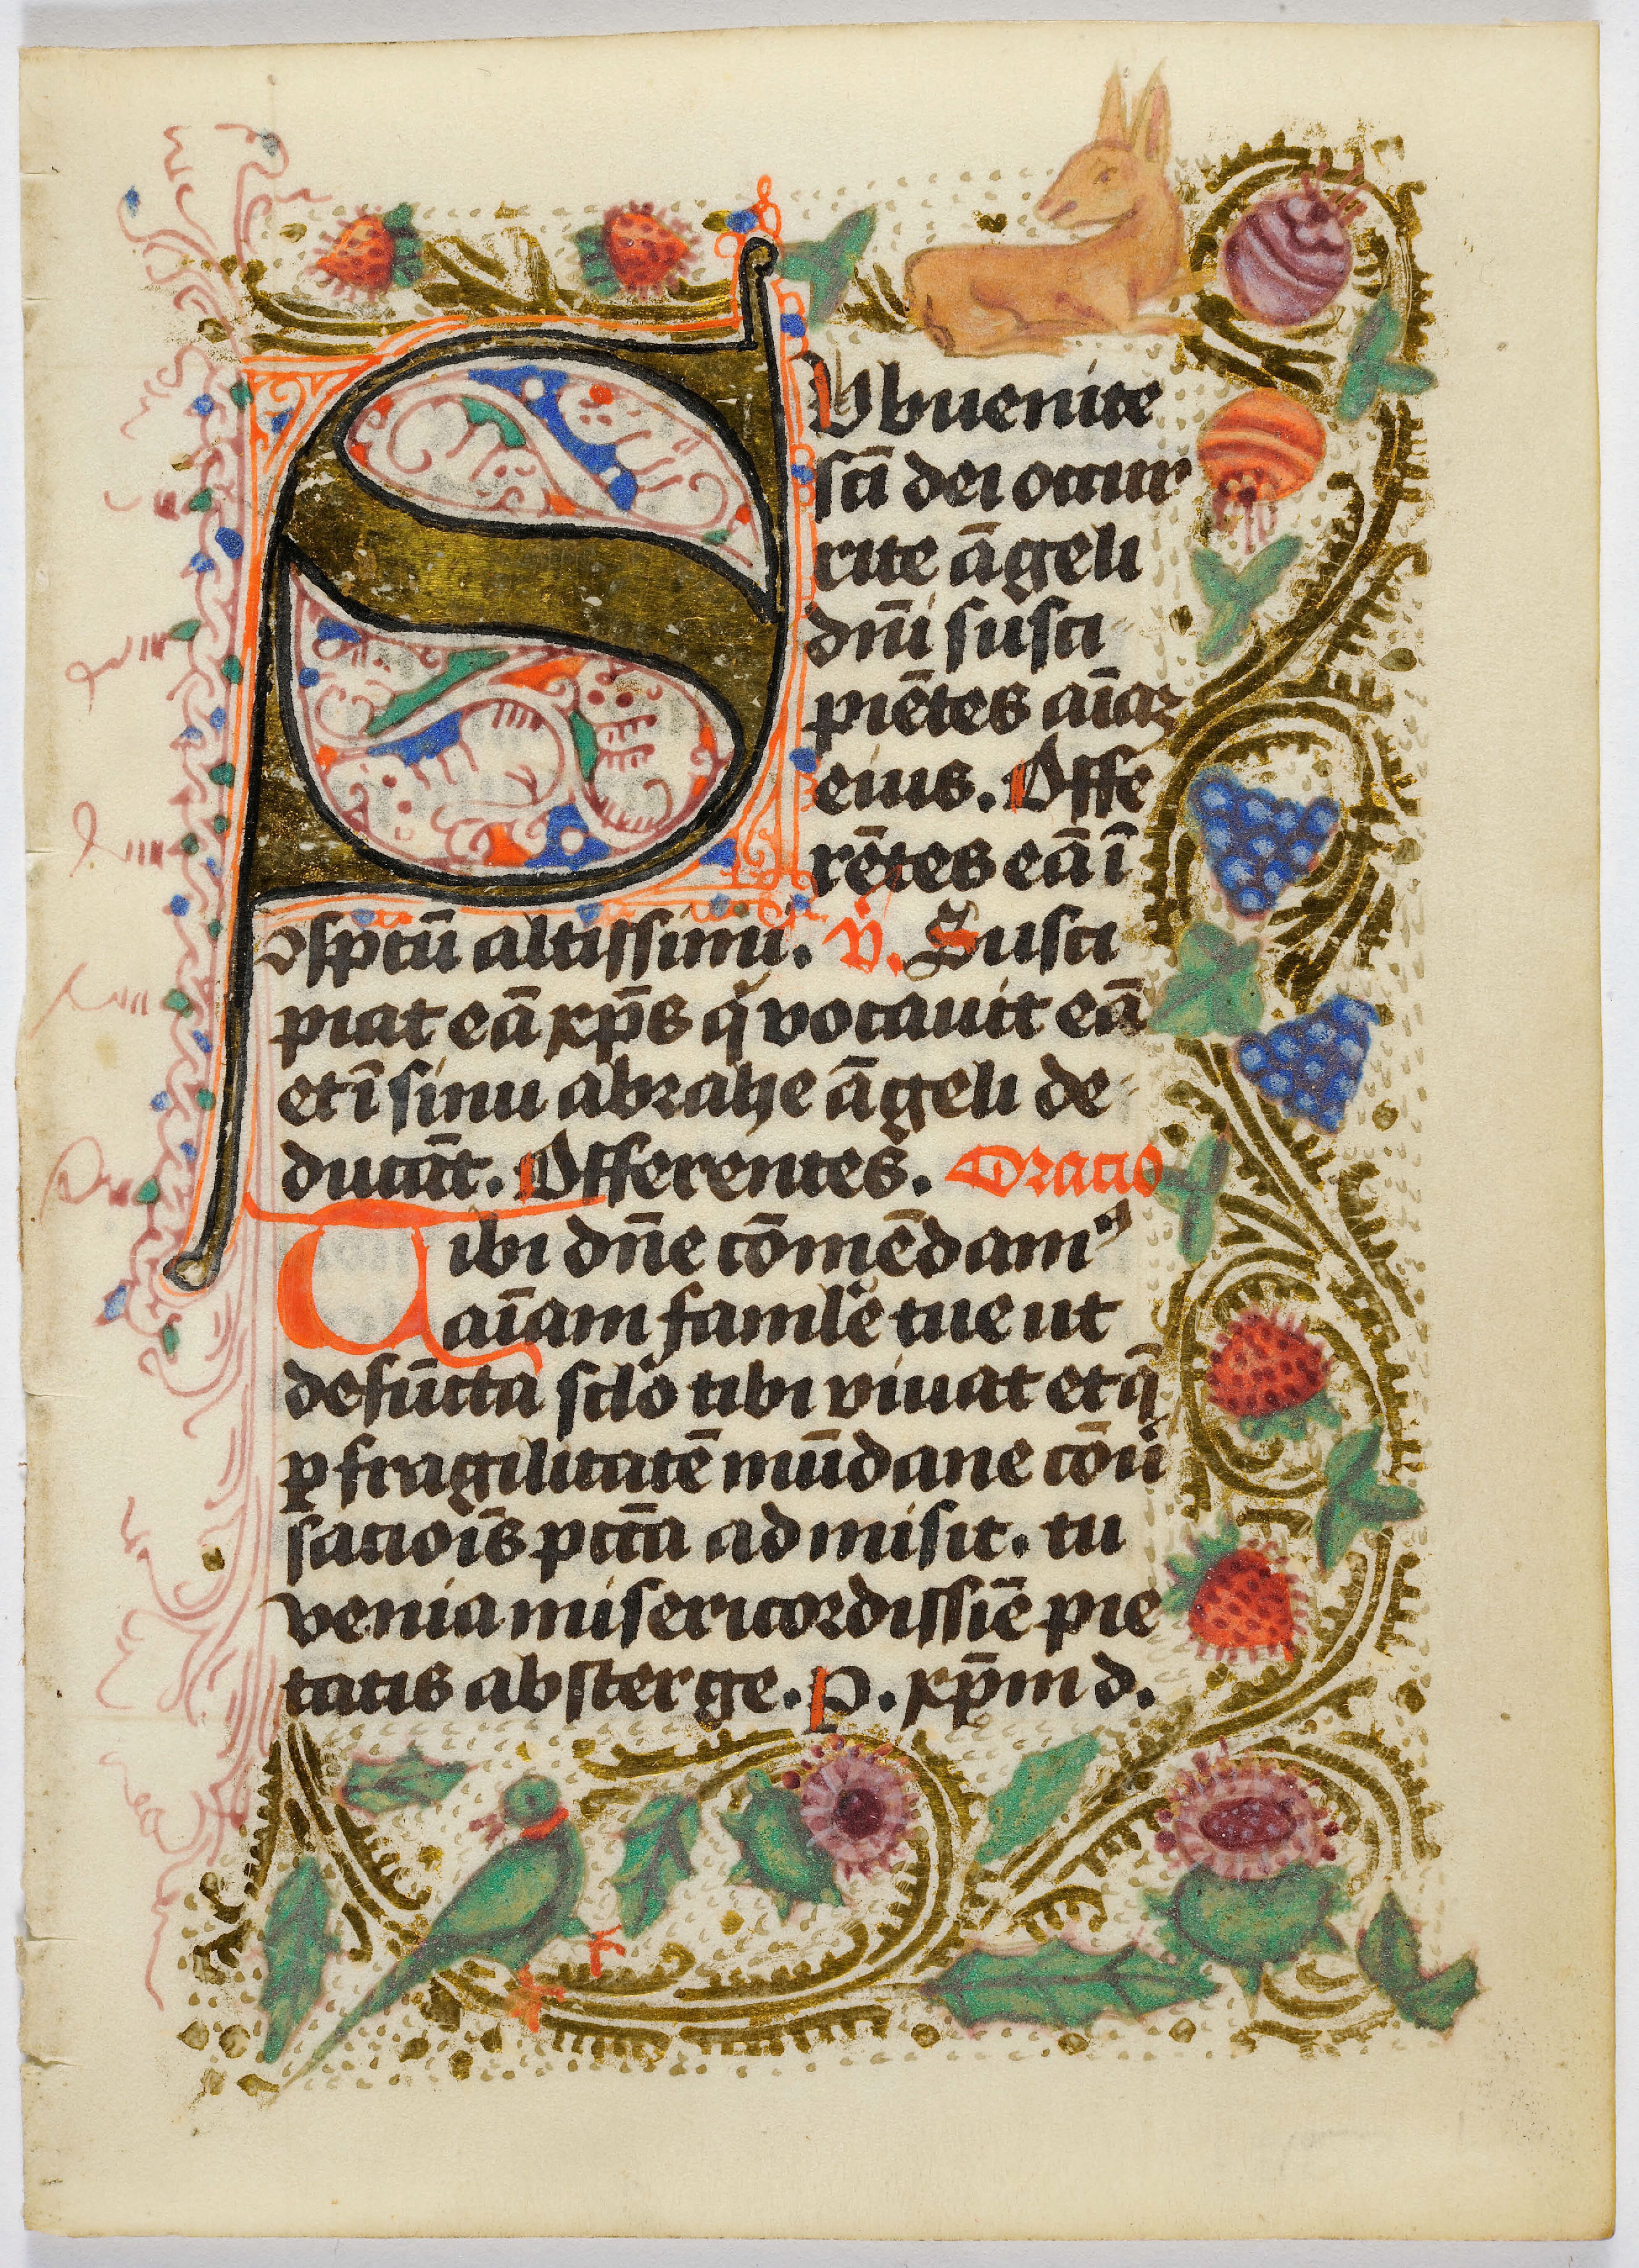 SVbuenite
sc̄i dei occur
rite āgeli
dn̄i susci
piētes aīaꝫ
eius. Offe
rētes eā ī
ↄspc̄tū altissimi. V̄. Susci
piat eā xp̄s q̇ vocauit eā
et ī sinu abrahe āgeli de
ducāt. Offerentes. Oracio
Tibi dn̄e cōmēdamꝰ
aīam famłe tue ut
defūcta scło tibi viuat et q̄
ꝑ fragilitatē mūdane cōu̇
sacioīs pctā̄ admisit. tu
venia misericordissīē pie
tatis absterge. P. xp̄m d.